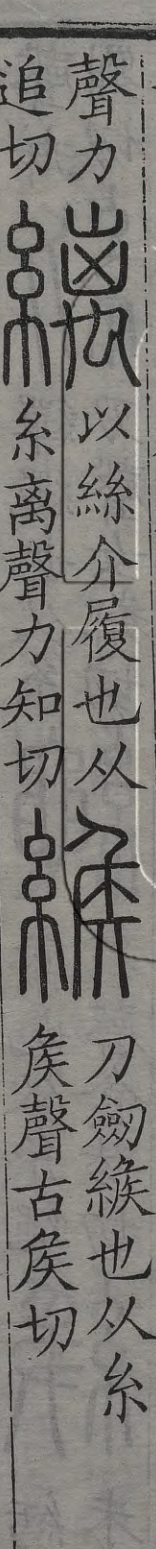 聲力
追切
縭
以絲介履也从
糸离聲力知切
緱
刀劒緱也从糸
矦聲古矦切